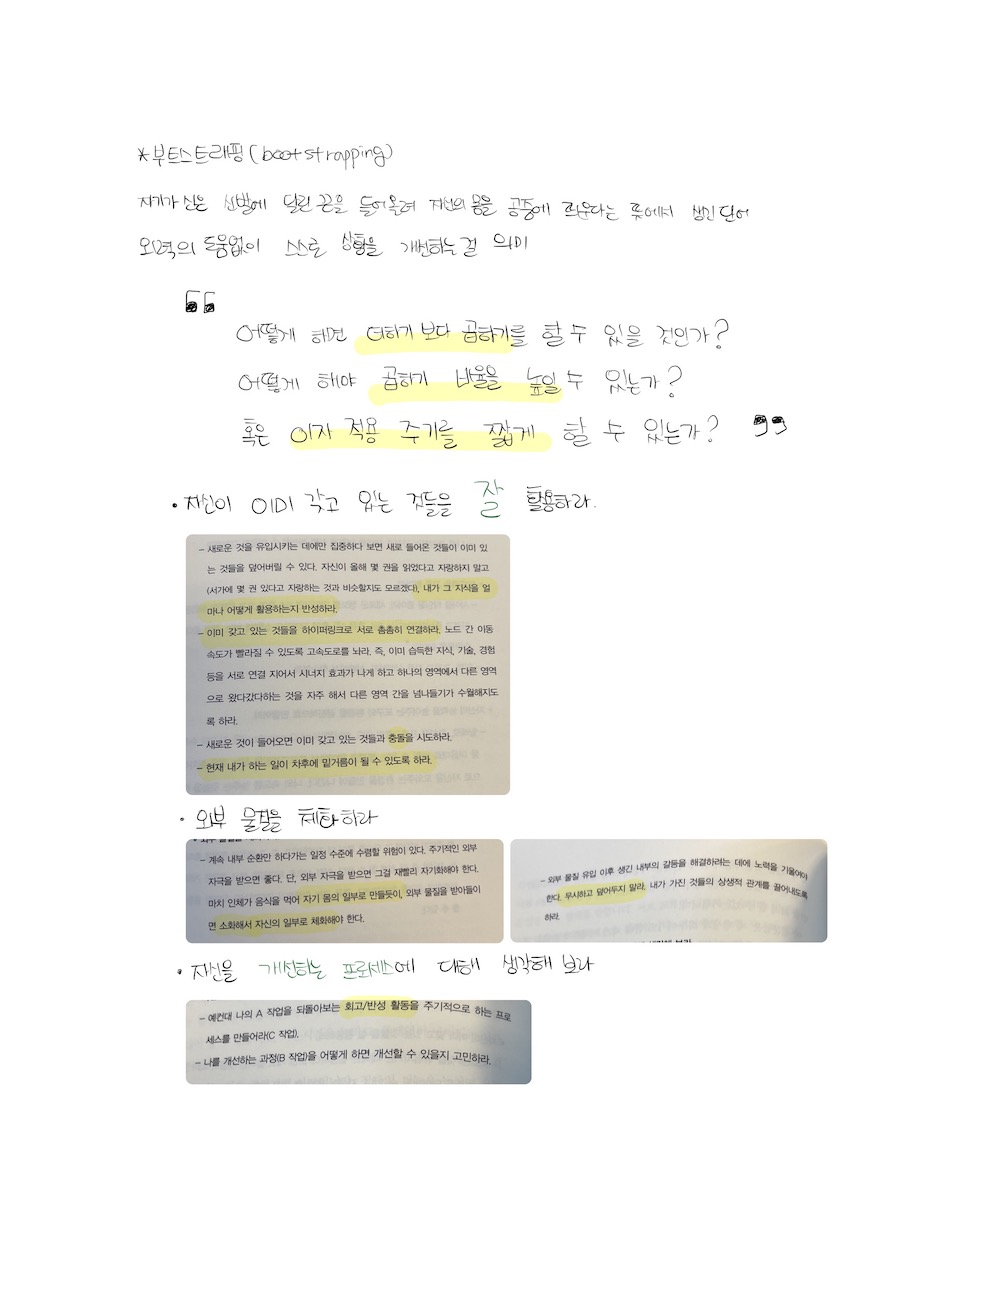 *부트스트래핑(bootstrapping)
자기가 신은 신발에 달린 끈을 들어올려 자신의 몸을 공중에 띄운다는 뜻에서 생긴 단어
외력의 도움없이 스스로 상황을 개선하는 걸 의미
“
어떻게 하면 더하기 보다 곱하기를 할 수 있을 것인가?
어떻게 해야 곱하기 비율을 높일 수 있는가?
혹은 이자 적용 주기를 짧게 할 수 있는가? ”
• 자신이 이미 갖고 있는 것들을 잘 활용하라.
– 새로운 것을 유입시키는 데에만 집중하다 보면 새로 들어온 것들이 이미 있
는 것들을 덮어버릴 수 있다. 자신이 올해 몇 권을 읽었다고 자랑하지 말고
(서가에 몇 권 있다고 자랑하는 것과 비슷할지도 모르겠다), 내가 그 지식을 얼
마나 어떻게 활용하는지 반성하라.
– 이미 갖고 있는 것들을 하이퍼링크로 서로 촘촘히 연결하라. 노드 간 이동
속도가 빨라질 수 있도록 고속도로를 놔라. 즉, 이미 습득한 지식, 기술, 경험
등을 서로 연결 지어서 시너지 효과가 나게 하고 하나의 영역에서 다른 영역
으로 왔다갔다하는 것을 자주 해서 다른 영역 간을 넘나들기가 수월해지도
록 하라.
– 새로운 것이 들어오면 이미 갖고 있는 것들과 충돌을 시도하라.
– 현재 내가 하는 일이 차후에 밑거름이 될 수 있도록 하라.
• 외부 물질을 체화하라
– 계속 내부 순환만 하다가는 일정 수준에 수렴할 위험이 있다. 주기적인 외부
자극을 받으면 좋다. 단, 외부 자극을 받으면 그걸 재빨리 자기화해야 한다.
마치 인체가 음식을 먹어 자기 몸의 일부로 만들듯이, 외부 물질을 받아들이
면 소화해서 자신의 일부로 체화해야 한다.
– 외부 물질 유입 이후 생긴 내부의 갈등을 해결하려는 데에 노력을 기울여야
한다. 무시하고 덮어두지 말라. 내가 가진 것들의 상생적 관계를 끌어내도록
하라.
• 자신을 개선하는 프로세스에 대해 생각해 보라
– 예컨대 나의 A 작업을 되돌아보는 회고/반성 활동을 주기적으로 하는 프로
세스를 만들어라(C 작업).
– 나를 개선하는 과정(B 작업)을 어떻게 하면 개선할 수 있을지 고민하라.